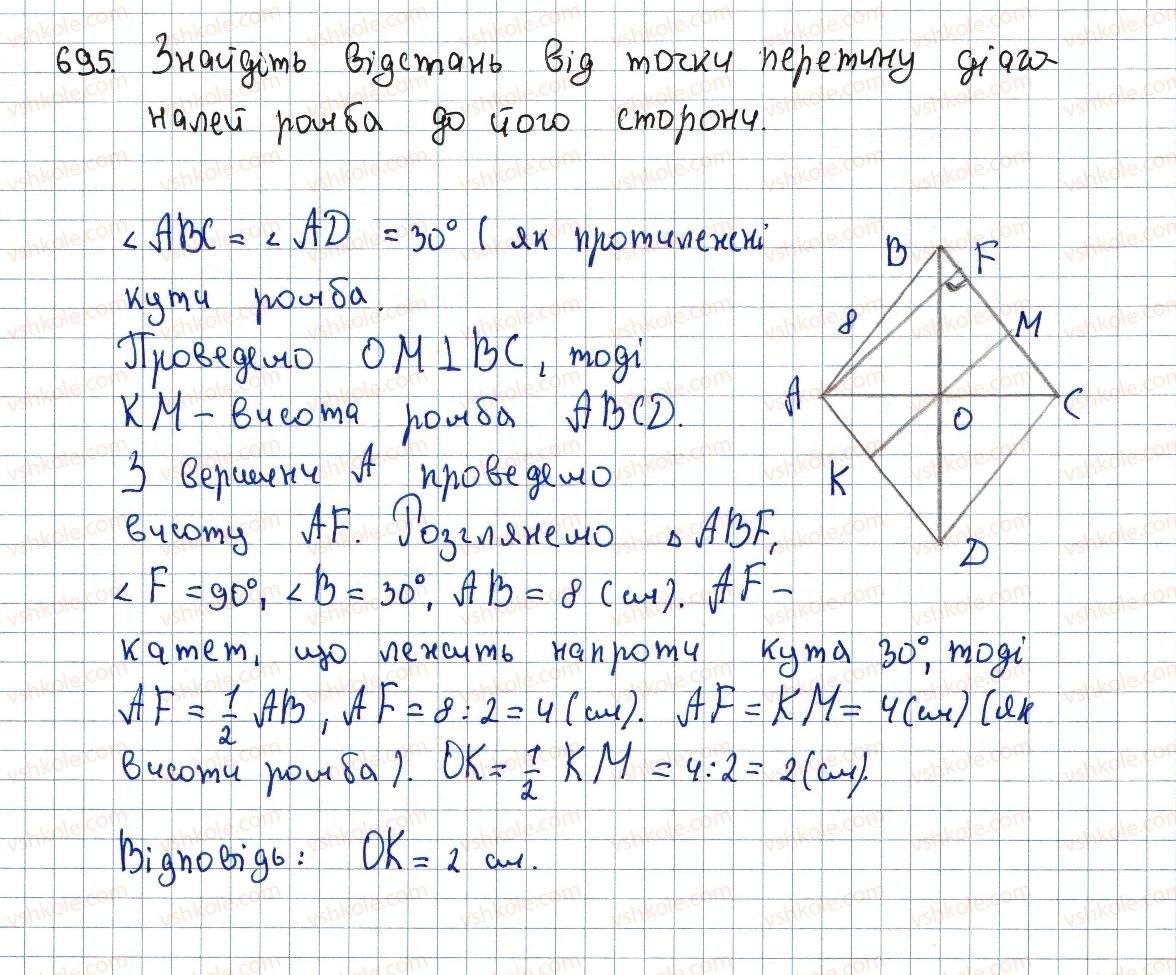 695. Знайдіть відстань від точки перетину діаго-
налей ромба до його сторони.
∠ABC = ∠AD = 30° ( як протилежні
кути ромба.
Проведемо OM⊥BC, тоді
KM – висота ромба ABCD.
З вершини A проведемо
висоту AF. Розглянемо △ABF,
∠F = 90°, ∠B = 30°, AB = 8 (см). AF –
катет, що лежить напроти кута 30°, тоді
AF = 1/2 AB, AF = 8 : 2 = 4 (см). AF = KM = 4(см) (як
висоти ромба). OK = 1/2 KM = 4:2 = 2 (см).
Відповідь: OK = 2 см.
B
F
8
M
A
O
C
K
D
vshkole.com